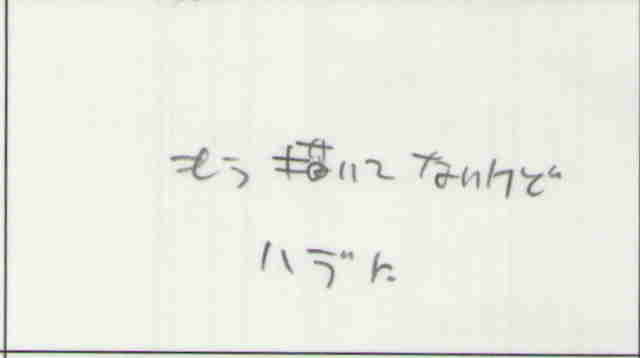 もう描いてないけど
ハデに